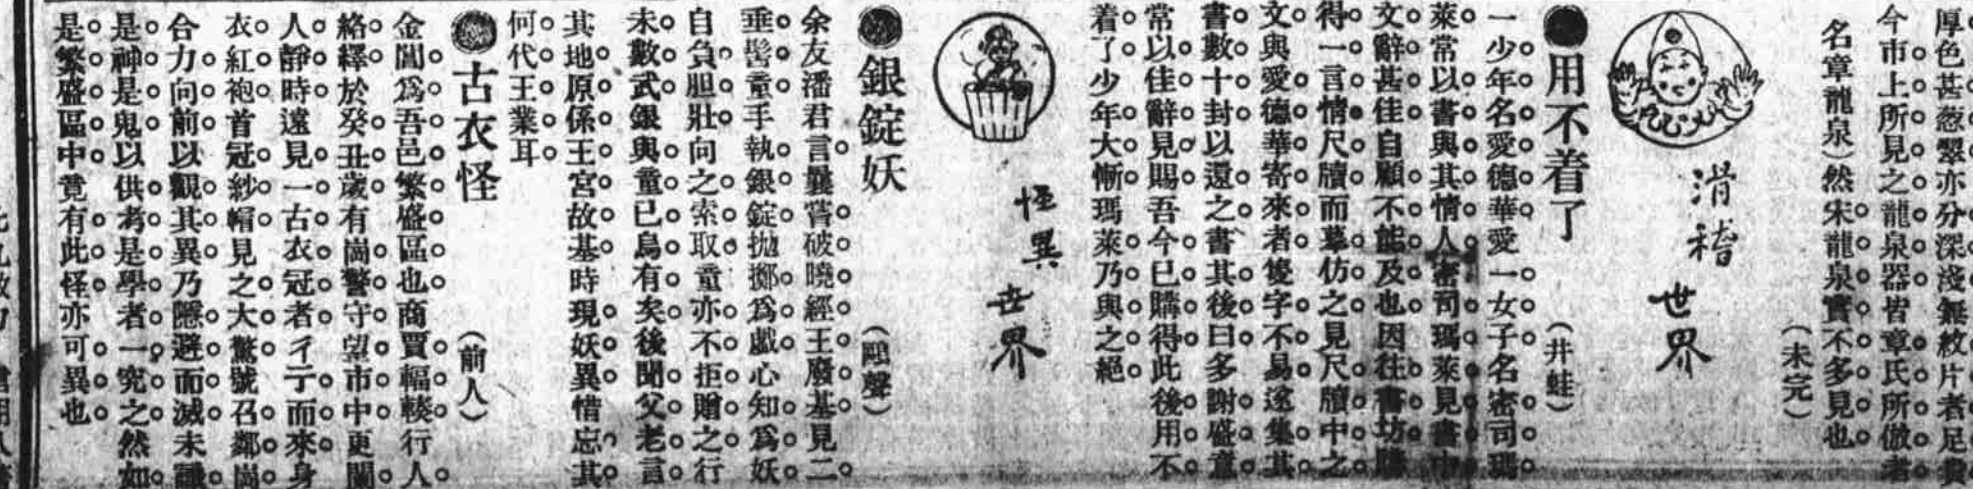 厚色甚葱翠亦分深淺無紋片者足貴
今市上所見之龍泉器皆章氏所倣者
名章龍泉）然宋龍泉實不多見也
（未完）
滑稽
世界
●用不着了
（井蛙）
一少年名愛德華愛一女子名密司瑪
萊常以書與其情人密司瑪萊見書中
文辭甚佳自顧不能及也因往書坊購
得一言情尺牘而摹仿之見尺牘中之
文與愛德華寄來者隻字不易遂集其
書數十封以還之書其後曰多謝盛意
常以佳辭見賜吾今已購得此後用不
着了少年大慚瑪萊乃與之絕
怪異
世界
●銀錠妖
余友潘君言曩嘗破曉經王廢基見二
垂髫童手執銀錠拋擲爲戲心知爲妖
自負胆壯向之索取童亦不拒贈之行
未數武銀與童已烏有矣後聞父老言
其地原係王宮故基時現妖異惜忘其
何代王業耳
●古衣怪
（前人）
金閶爲吾邑繁盛區也商賈輻輳行人
絡繹於癸丑歲有崗警守望市中更闌
人靜時遠見一古衣冠者彳亍而來身
衣紅袍首冠紗帽見之大驚號召鄰崗
合力向前以觀其異乃隱避而滅未識
是神是鬼以供考是學者一究之然如
是繁盛區中竟有此怪亦可異也